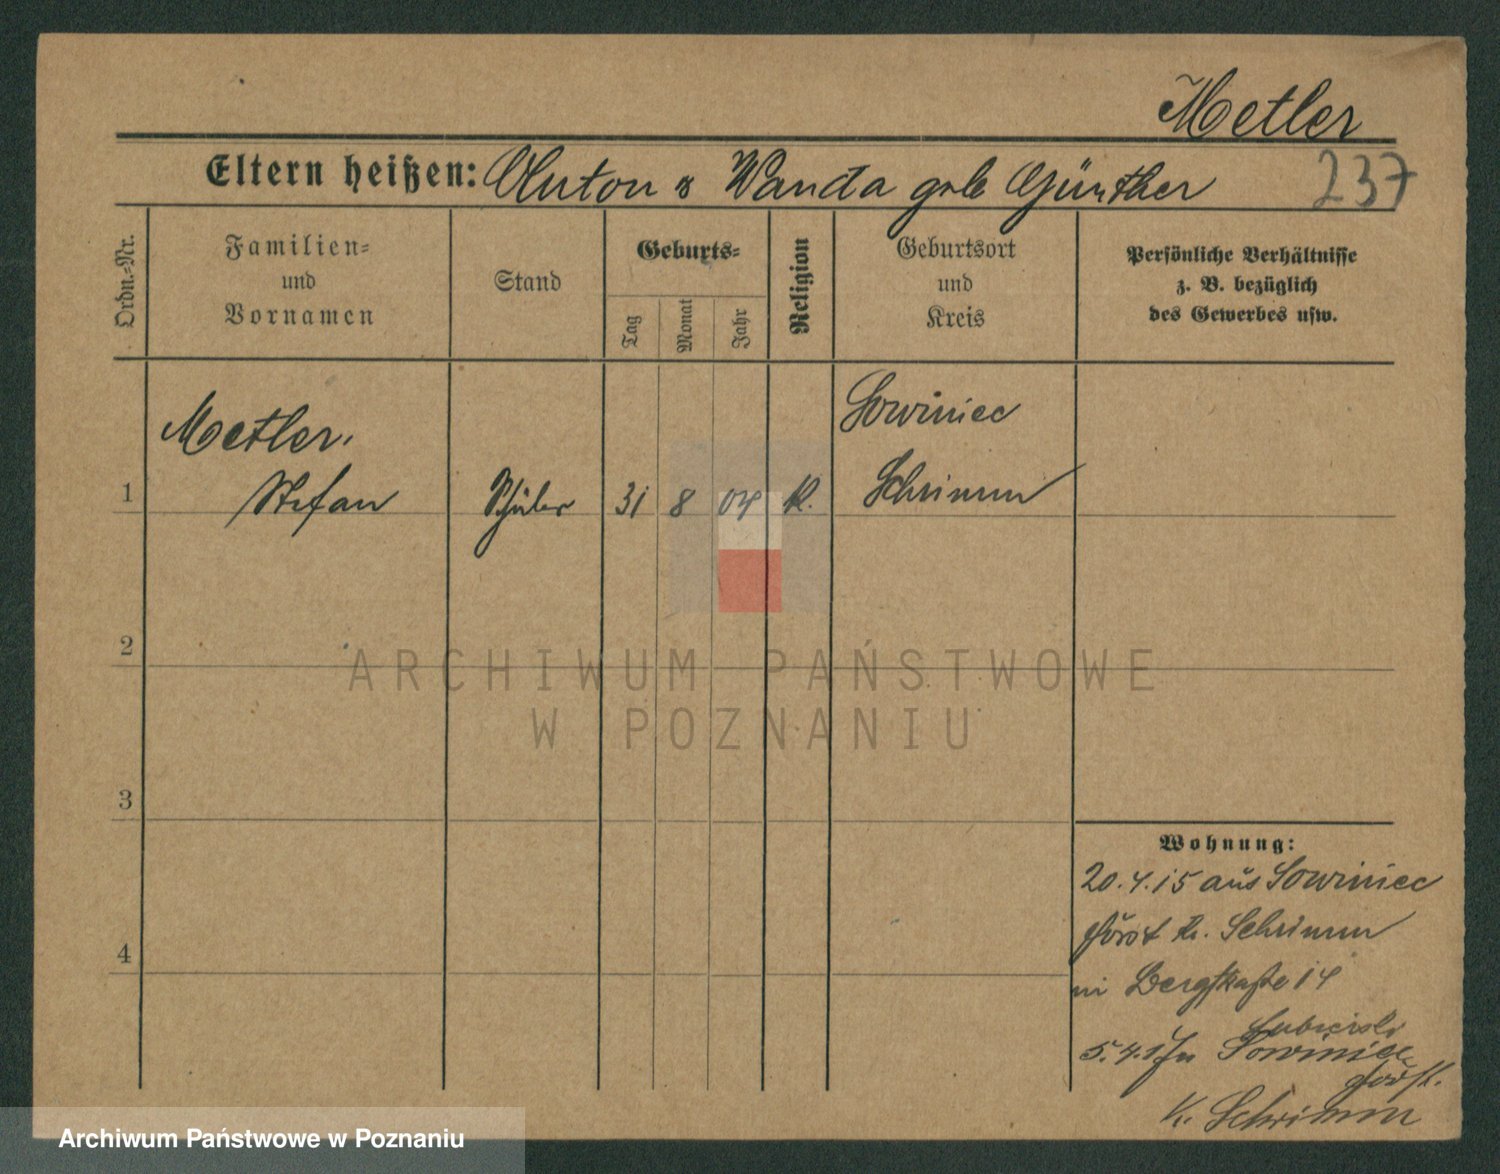 Metler
Eltern heißen: Anton & Wanda geb Günther
237
Ordn.=Nr.
Familien=
und
Vornamen
Stand
Geburts=
Tag
Monat
Jahr
Religion
Geburtsort
und
Kreis
Persönliche Verhältnisse
z. B. bezüglich
des Gewerbes usw.
Metler.
Sowiniec
1 Stefan Schüler 31 8 04 K. Schrimm
2
ARCHIWUM PAŃSTWOWE
W POZNANIU
3
Wohnung:
20.4.15 aus Sowiniec
Forst Kr. Schrimm
in Bergstraße 14
4
5.4.17 Sowiniec
Forst.
K. Schrimm
Archiwum Państwowe w Poznaniu